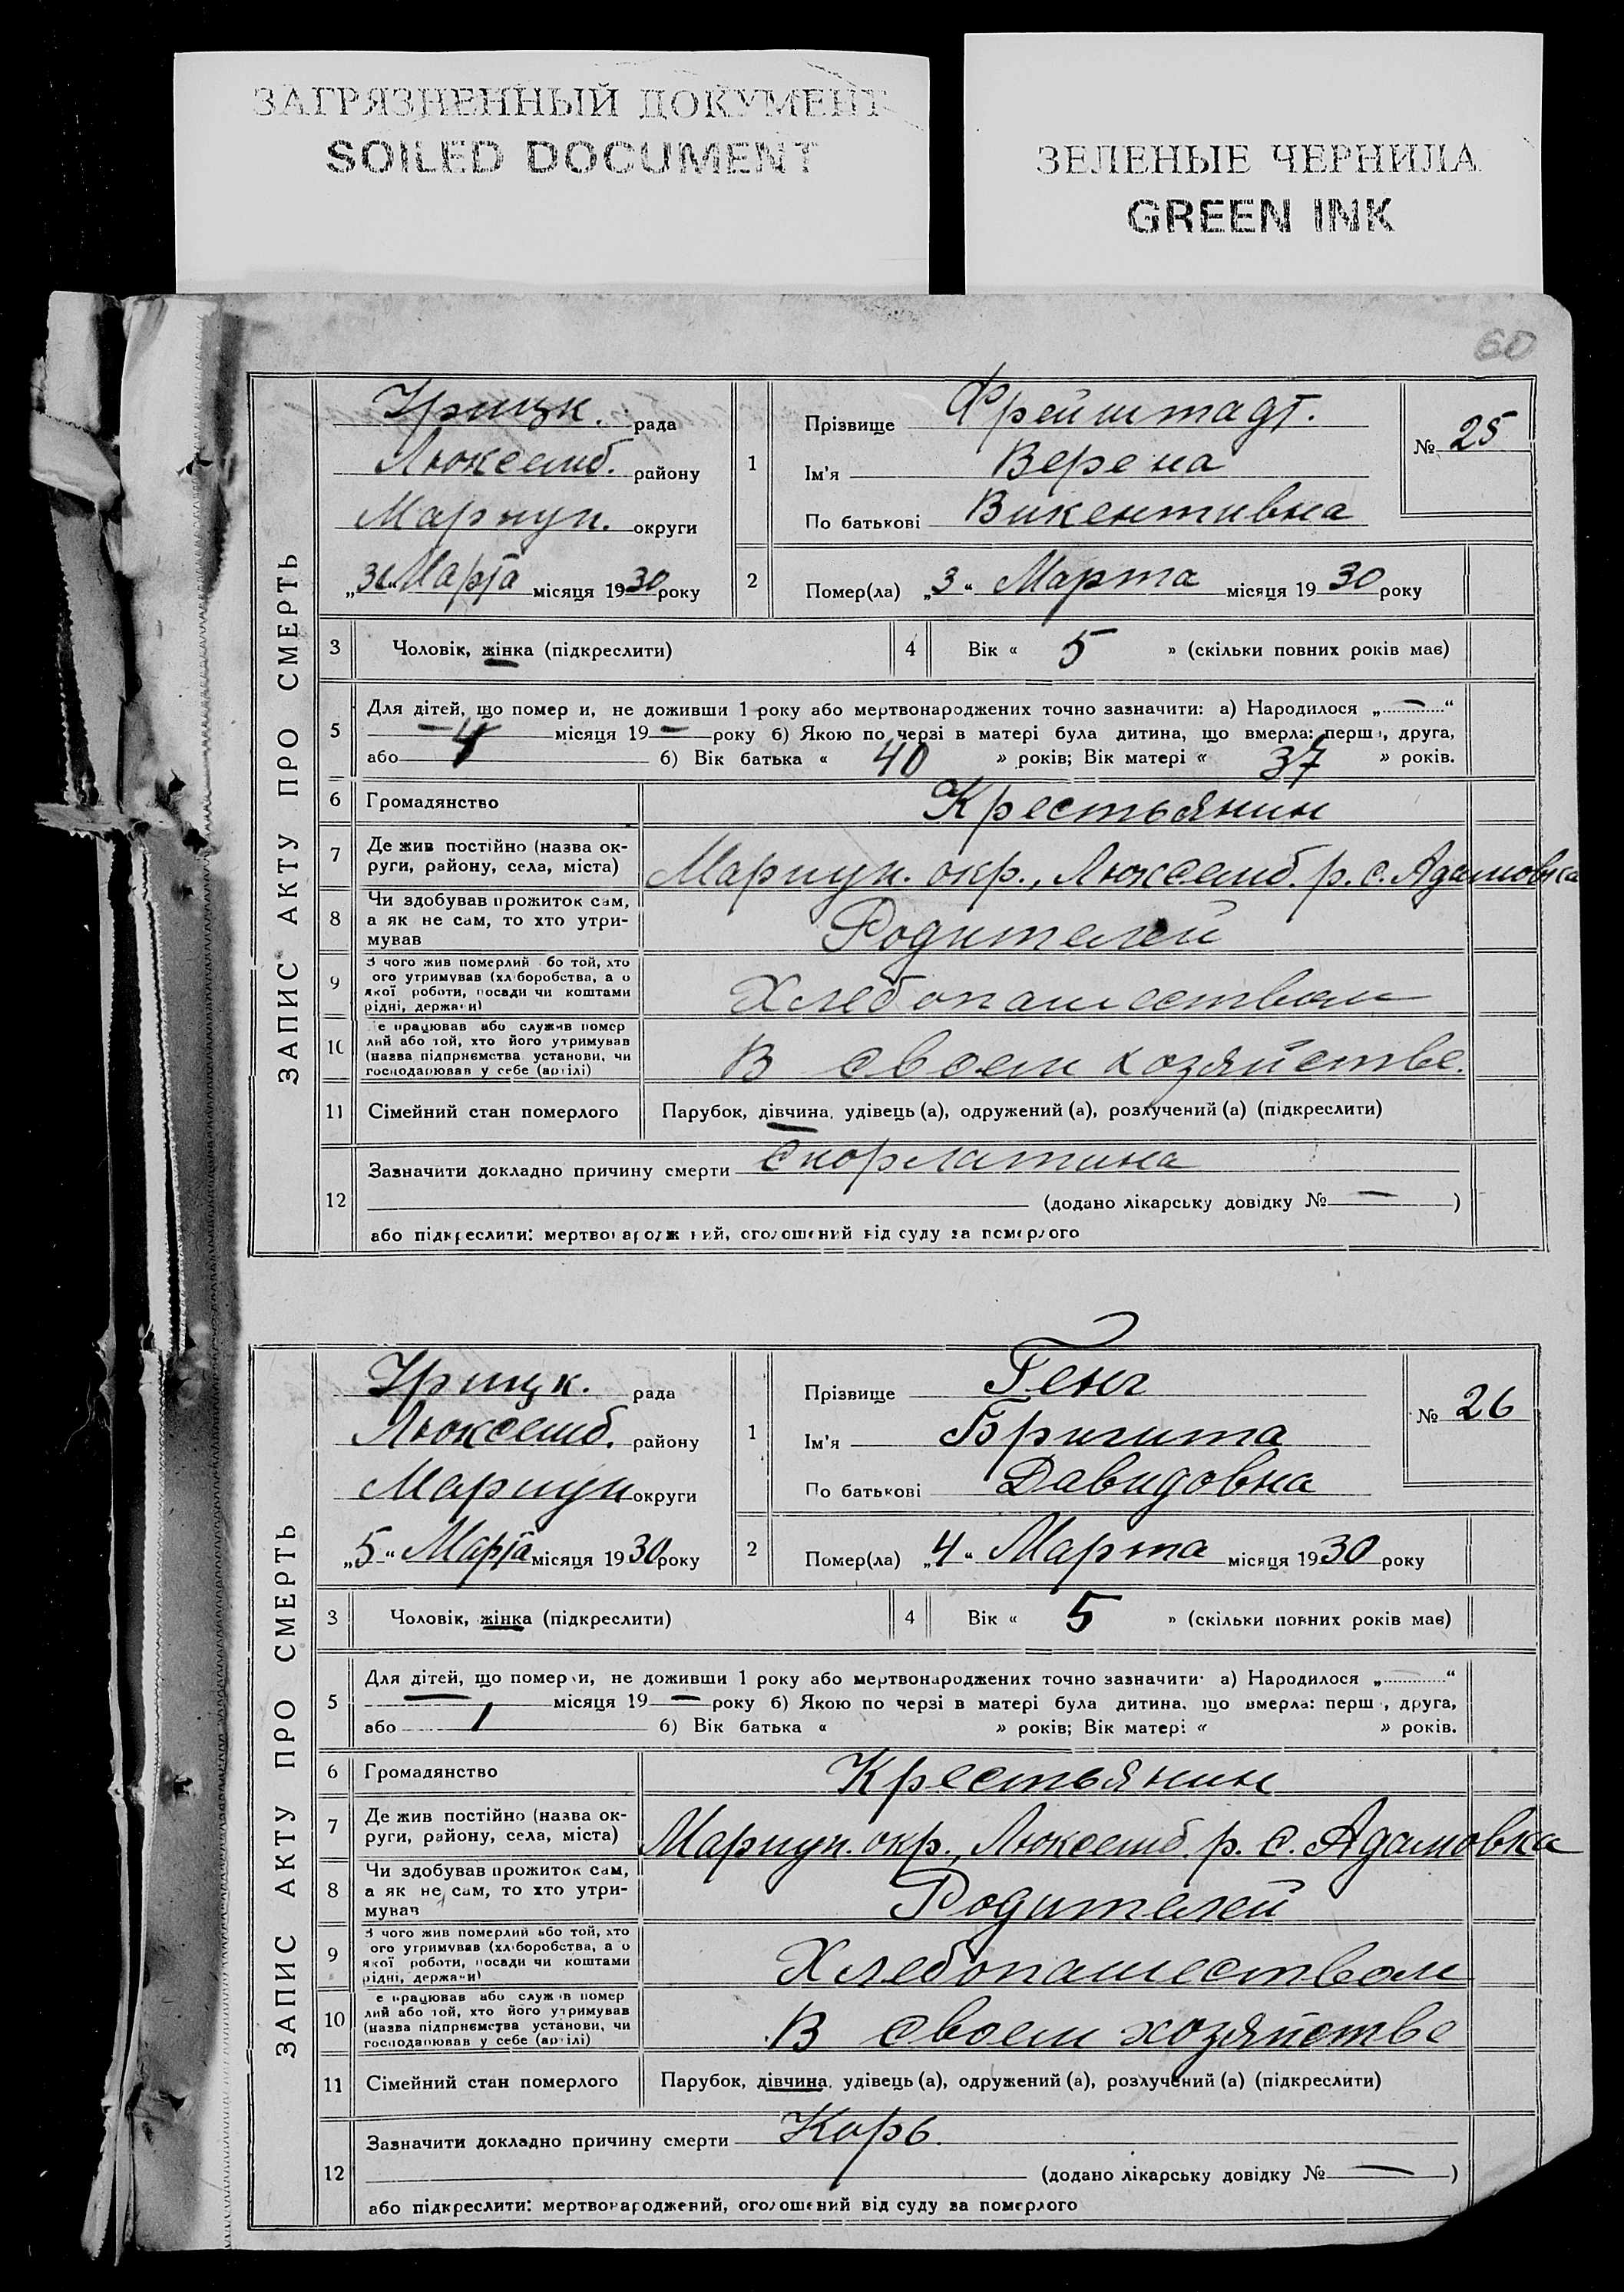 ЗАГРЯЗНЕННЫЙ ДОКУМЕНТ
SOILED DOCUMENT
ЗЕЛЕНЫЕ ЧЕРНИЛА
GREEN INK
60
ЗАПИС АКТУ ПРО СМЕРТЬ
Урицк. рада
Люксемб. району
Мариуп. округи
„3“ Марта місяця 1930 року
1
Прізвище Фрейштадт.
Ім'я Верена
По батькові Викентивна
№ 25
2 Помер(ла) „3“ Марта місяця 1930 року
3 Чоловік, жінка (підкреслити)
4 Вік « 5 » (скільки повних років має)
5 Для дітей, що помер и, не доживши 1 року або мертвонароджених точно зазначити: а) Народилося „—“
— місяця 19 — року б) Якою по черзі в матері була дитина, що вмерла: перш , друга,
або 4 б) Вік батька « 40 » років; Вік матері « 37 » років.
6 Громадянство Крестьянин
7 Де жив постійно (назва ок-
руги, району, села, міста) Мариуп. окр., Люксемб. р. с. Адамовка
8 Чи здобував прожиток сам,
а як не сам, то хто утри-
мував Родителей
9 З чого жив померлий бо той, хто
ого утримував (хліборобства, а о
якої роботи, посади чи коштами
рідні, держави) Хлебопашеством
10 е працював або служив помер
лий або той, хто його утримував
(назва підприємства установи, чи
господарював у себе (артілі) В своем хозяйстве.
11 Сімейний стан померлого Парубок, дівчина, удівець (а), одружений (а), розлучений (а) (підкреслити)
12 Зазначити докладно причину смерти Скорлатина
(додано лікарську довідку № — )
або підкреслити: мертвонароджений, оголошений від суду за померлого
ЗАПИС АКТУ ПРО СМЕРТЬ
Урицк. рада
Люксемб. району
Мариуп округи
„5“ Марта місяця 1930 року
1
Прізвище Генг
Ім'я Бригита
По батькові Давидовна
№ 26
2 Помер(ла) „4“ Марта місяця 1930 року
3 Чоловік, жінка (підкреслити)
4 Вік « 5 » (скільки повних років має)
5 Для дітей, що помер и, не доживши 1 року або мертвонароджених точно зазначити: а) Народилося „ “
— місяця 19 — року б) Якою по черзі в матері була дитина, що вмерла: перш , друга,
або 1 б) Вік батька « » років; Вік матері « » років.
6 Громадянство Крестьянин
7 Де жив постійно (назва ок-
руги, району, села, міста) Мариуп. окр., Люксемб. р. с. Адамовка
8 Чи здобував прожиток сам,
а як не сам, то хто утри-
мував Родителей
9 З чого жив померлий або той, хто
ого утримував (хліборобства, а о
якої роботи, посади чи коштами
рідні, держави) Хлебопашеством
10 е працював або служ в помер
лий або той, хто його утримував
(назва підприємства установи, чи
господарював у себе (артілі) В своем хозяйстве
11 Сімейний стан померлого Парубок, дівчина, удівець (а), одружений (а), розлучений (а) (підкреслити)
12 Зазначити докладно причину смерти Корь.
(додано лікарську довідку № — )
або підкреслити: мертвонароджений, оголошений від суду за померлого